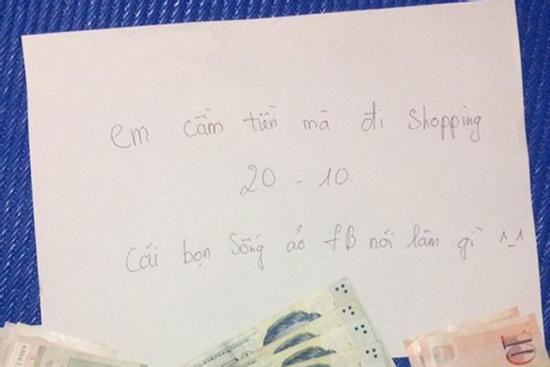 em cầm tiền mà đi shopping
20 - 10
Cái bọn Sống ảo fB nói làm gì ^_^
10